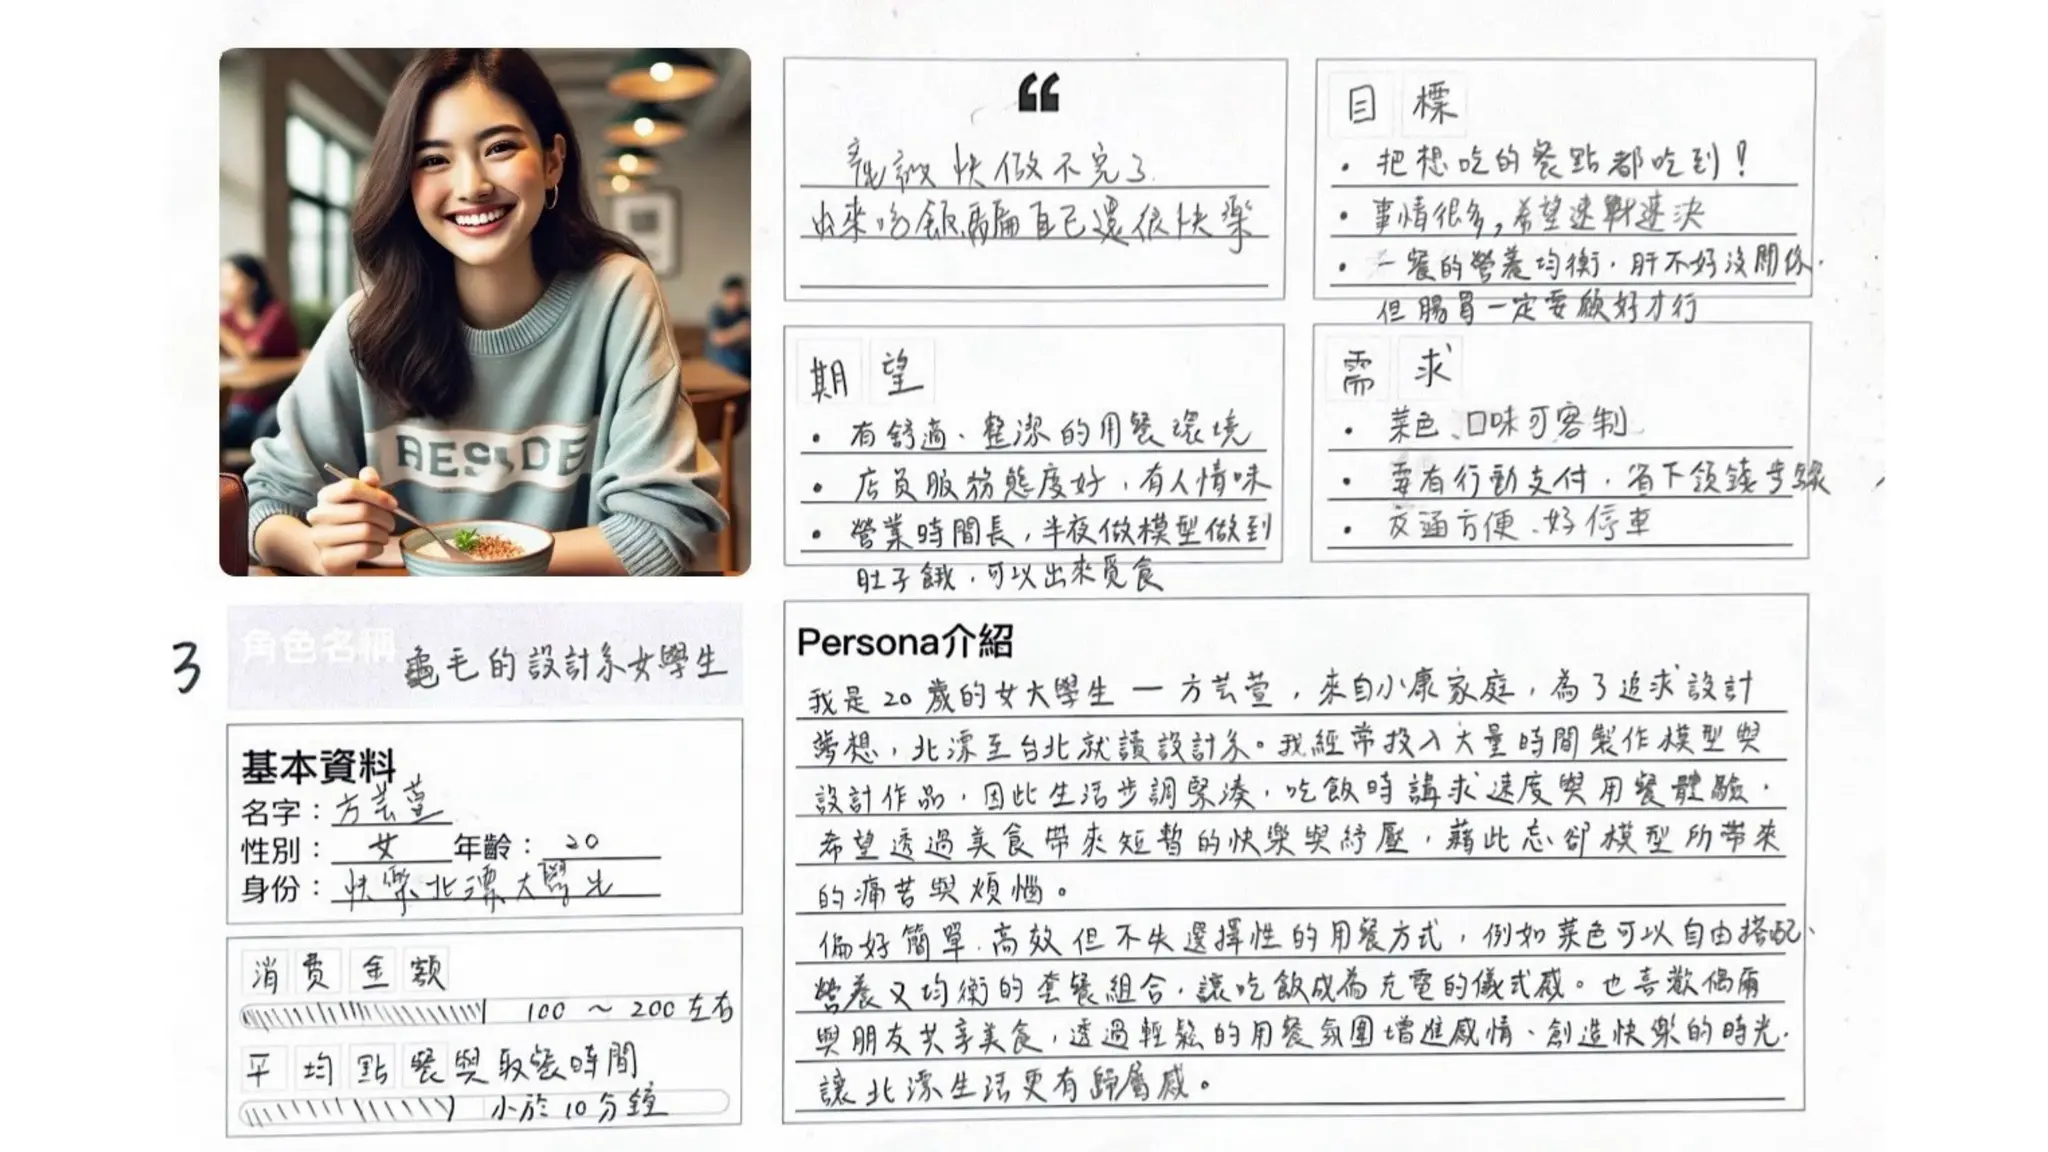 RESIDE
3
角色名稱 龜毛的設計系女學生
基本資料
名字：方芸萱
性別：女 年齡：20
身份：快樂北漂大學生
消費金額
100 ～ 200 左右
平均點餐與取餐時間
小於10分鐘
“
快做不完了
出來吃飯騙自己還很快樂
目標
• 把想吃的餐點都吃到！
• 事情很多，希望速戰速決
• 一餐的營養均衡，肝不好沒關係，
但腸胃一定要顧好才行
期望
• 有舒適、整潔的用餐環境
• 店員服務態度好，有人情味
• 營業時間長，半夜做模型做到
肚子餓，可以出來覓食
需求
• 菜色、口味可客制
• 要有行動支付，省下領錢步驟
• 交通方便、好停車
Persona介紹
我是 20 歲的女大學生 — 方芸萱，來自小康家庭，為了追求設計
夢想，北漂至台北就讀設計系。我經常投入大量時間製作模型與
設計作品，因此生活步調緊湊，吃飯時講求速度與用餐體驗，
希望透過美食帶來短暫的快樂與紓壓，藉此忘卻模型所帶來
的痛苦與煩惱。
偏好簡單、高效但不失選擇性的用餐方式，例如菜色可以自由搭配、
營養又均衡的套餐組合，讓吃飯成為充電的儀式感。也喜歡偶爾
與朋友共享美食，透過輕鬆的用餐氛圍增進感情、創造快樂的時光，
讓北漂生活更有歸屬感。